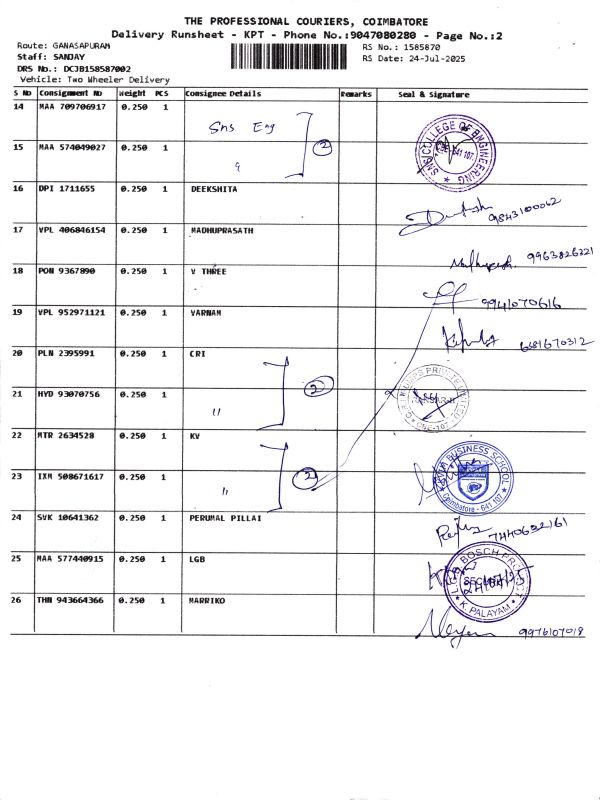 THE PROFESSIONAL COURIERS, COIMBATORE
Delivery Runsheet - KPT - Phone No.:9047080280 - Page No.:2
Route: GANASAPURAM
RS No.: 1585870
Staff: SANJAY
RS Date: 24-Jul-2025
DRS No.: DCJB158587002
Vehicle: Two Wheeler Delivery
S No Consignment No Weight PCS Consignee Details Remarks Seal & Signature
14 MAA 709706917 0.250 1 Sns Eng
15 MAA 574049027 0.250 1 " 2
SNS COLLEGE OF ENGINEERING 641 107
16 DPI 1711655 0.250 1 DEEKSHITA
9843100062
17 VPL 406846154 0.250 1 MADHUPRASATH
9963826321
18 PON 9367890 0.250 1 V THREE
9941070616
19 VPL 952971121 0.250 1 VARNAM
6681670312
20 PLN 2395991 0.250 1 CRI
21 HYD 93070756 0.250 1 " 2
22 MTR 2634528 0.250 1 KV
23 IXM 508671617 0.250 1 " 2
BUSINESS SCHOOL Coimbatore - 641 107
24 SVK 10641362 0.250 1 PERUMAL PILLAI
7440632161
25 MAA 577440915 0.250 1 LGB
BOSCH K. PALAYAM
26 THN 943664366 0.250 1 MARRIKO
9976107019